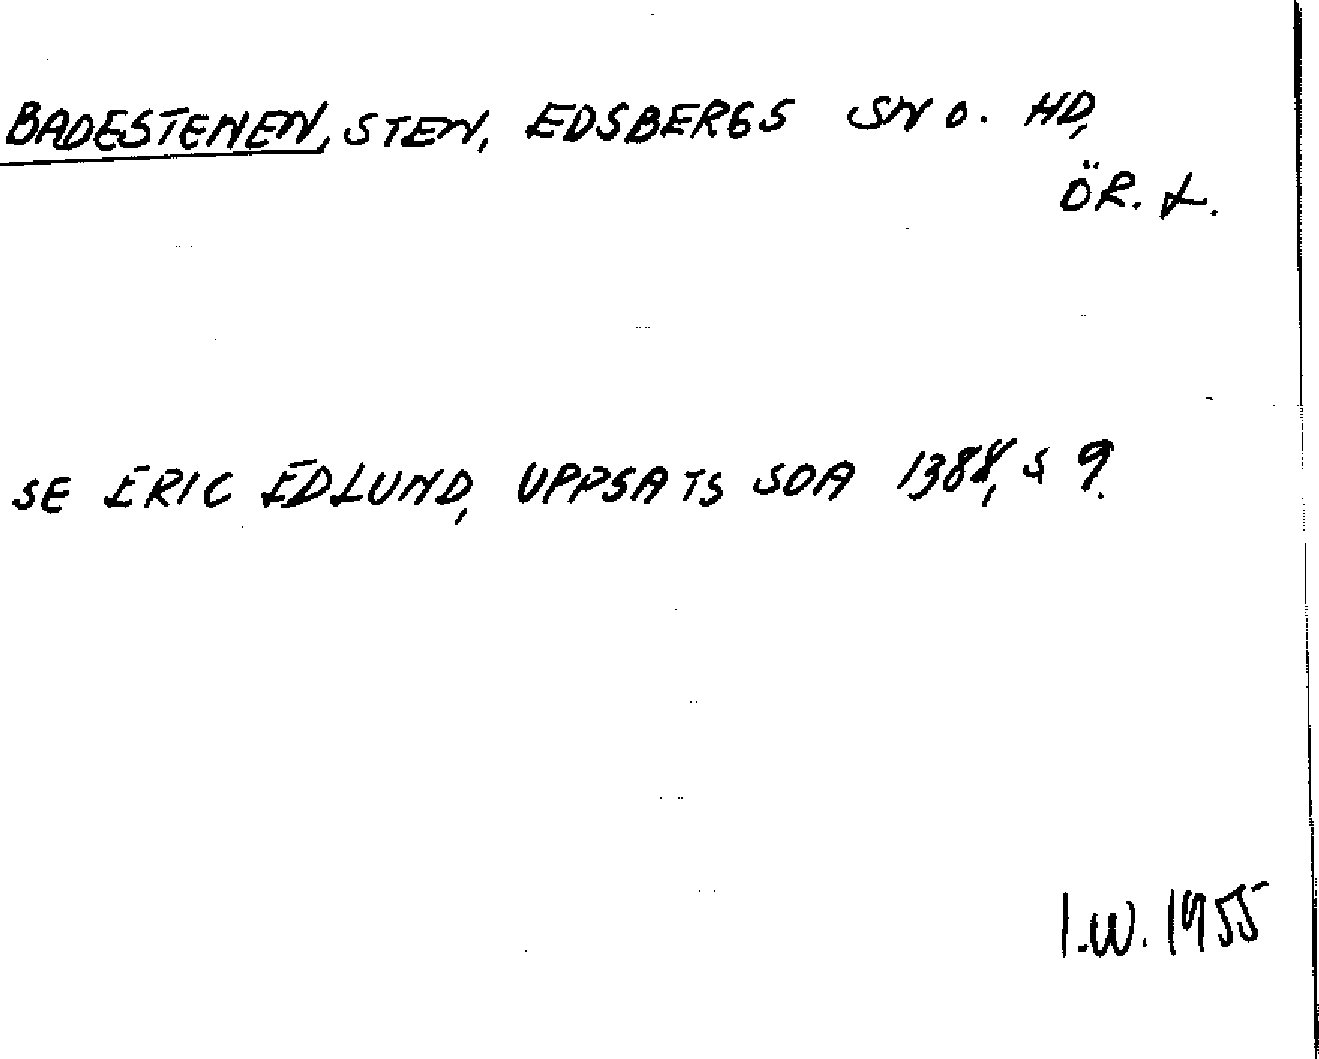 BADESTENEN, STEN, EDSBERGS SN O. HD,
ÖR. L.
SE ERIC EDLUND, UPPSATS SOA 1388, S 9.
I.W. 1955